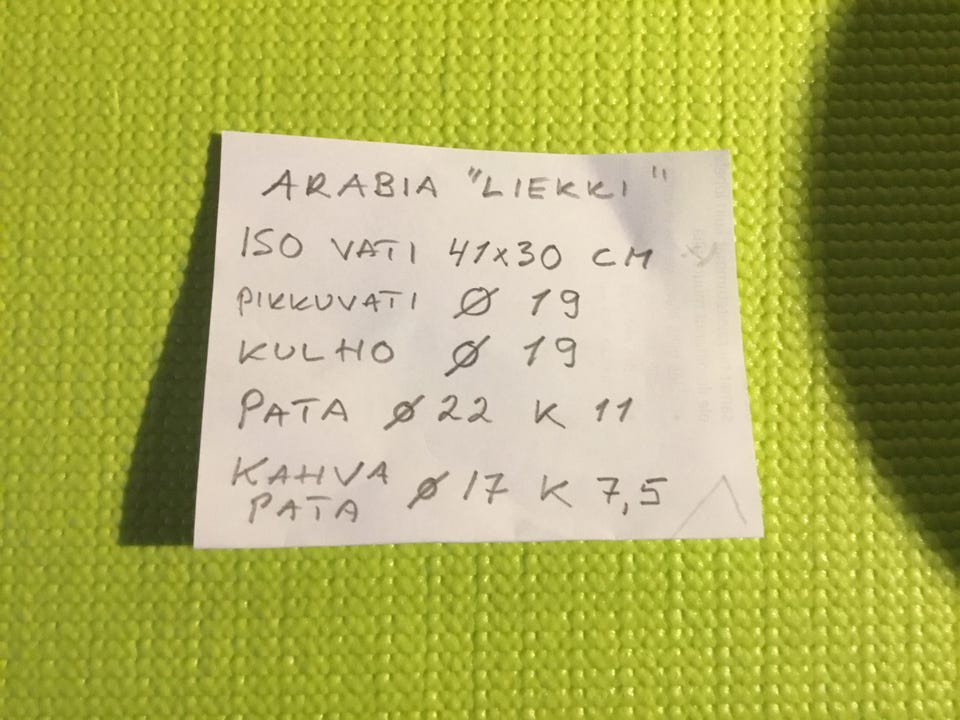 ARABIA "LIEKKI"
ISO VATI 41x30 CM
PIKKUVATI Ø 19
KULHO Ø 19
PATA Ø 22 K 11
KAHVA
PATA Ø 17 K 7,5